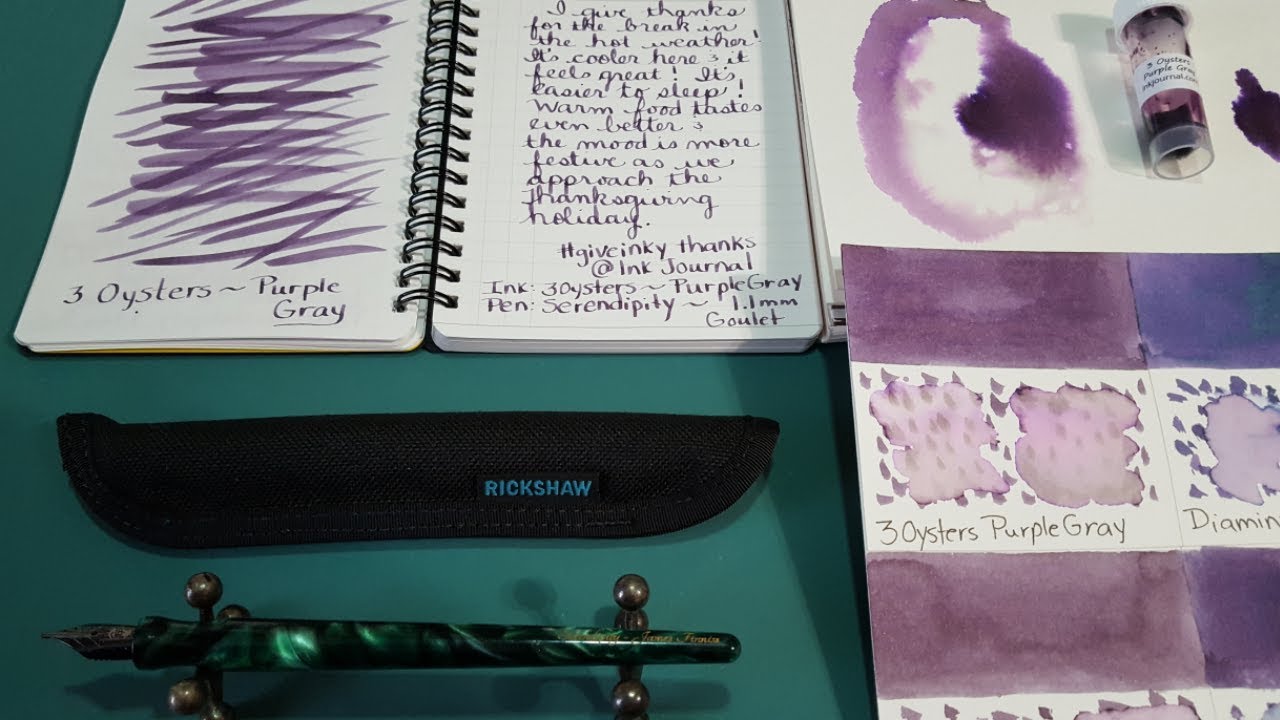 3 Oysters ~ Purple
Gray
I give thanks
for the break in
the hot weather!
It's cooler here & it
feels great! It's
easier to sleep!
Warm food tastes
even better &
the mood is more
festive as we
approach the
thanksguing
holiday.
#giveinky thanks
@Ink Journal
Ink: 3Oysters ~ PurpleGray
Pen: Serendipity ~ 1.1mm
Goulet
3 Oysters
Purple Gray
inkjournal.com
RICKSHAW
3 Oysters Purple Gray
Diamin